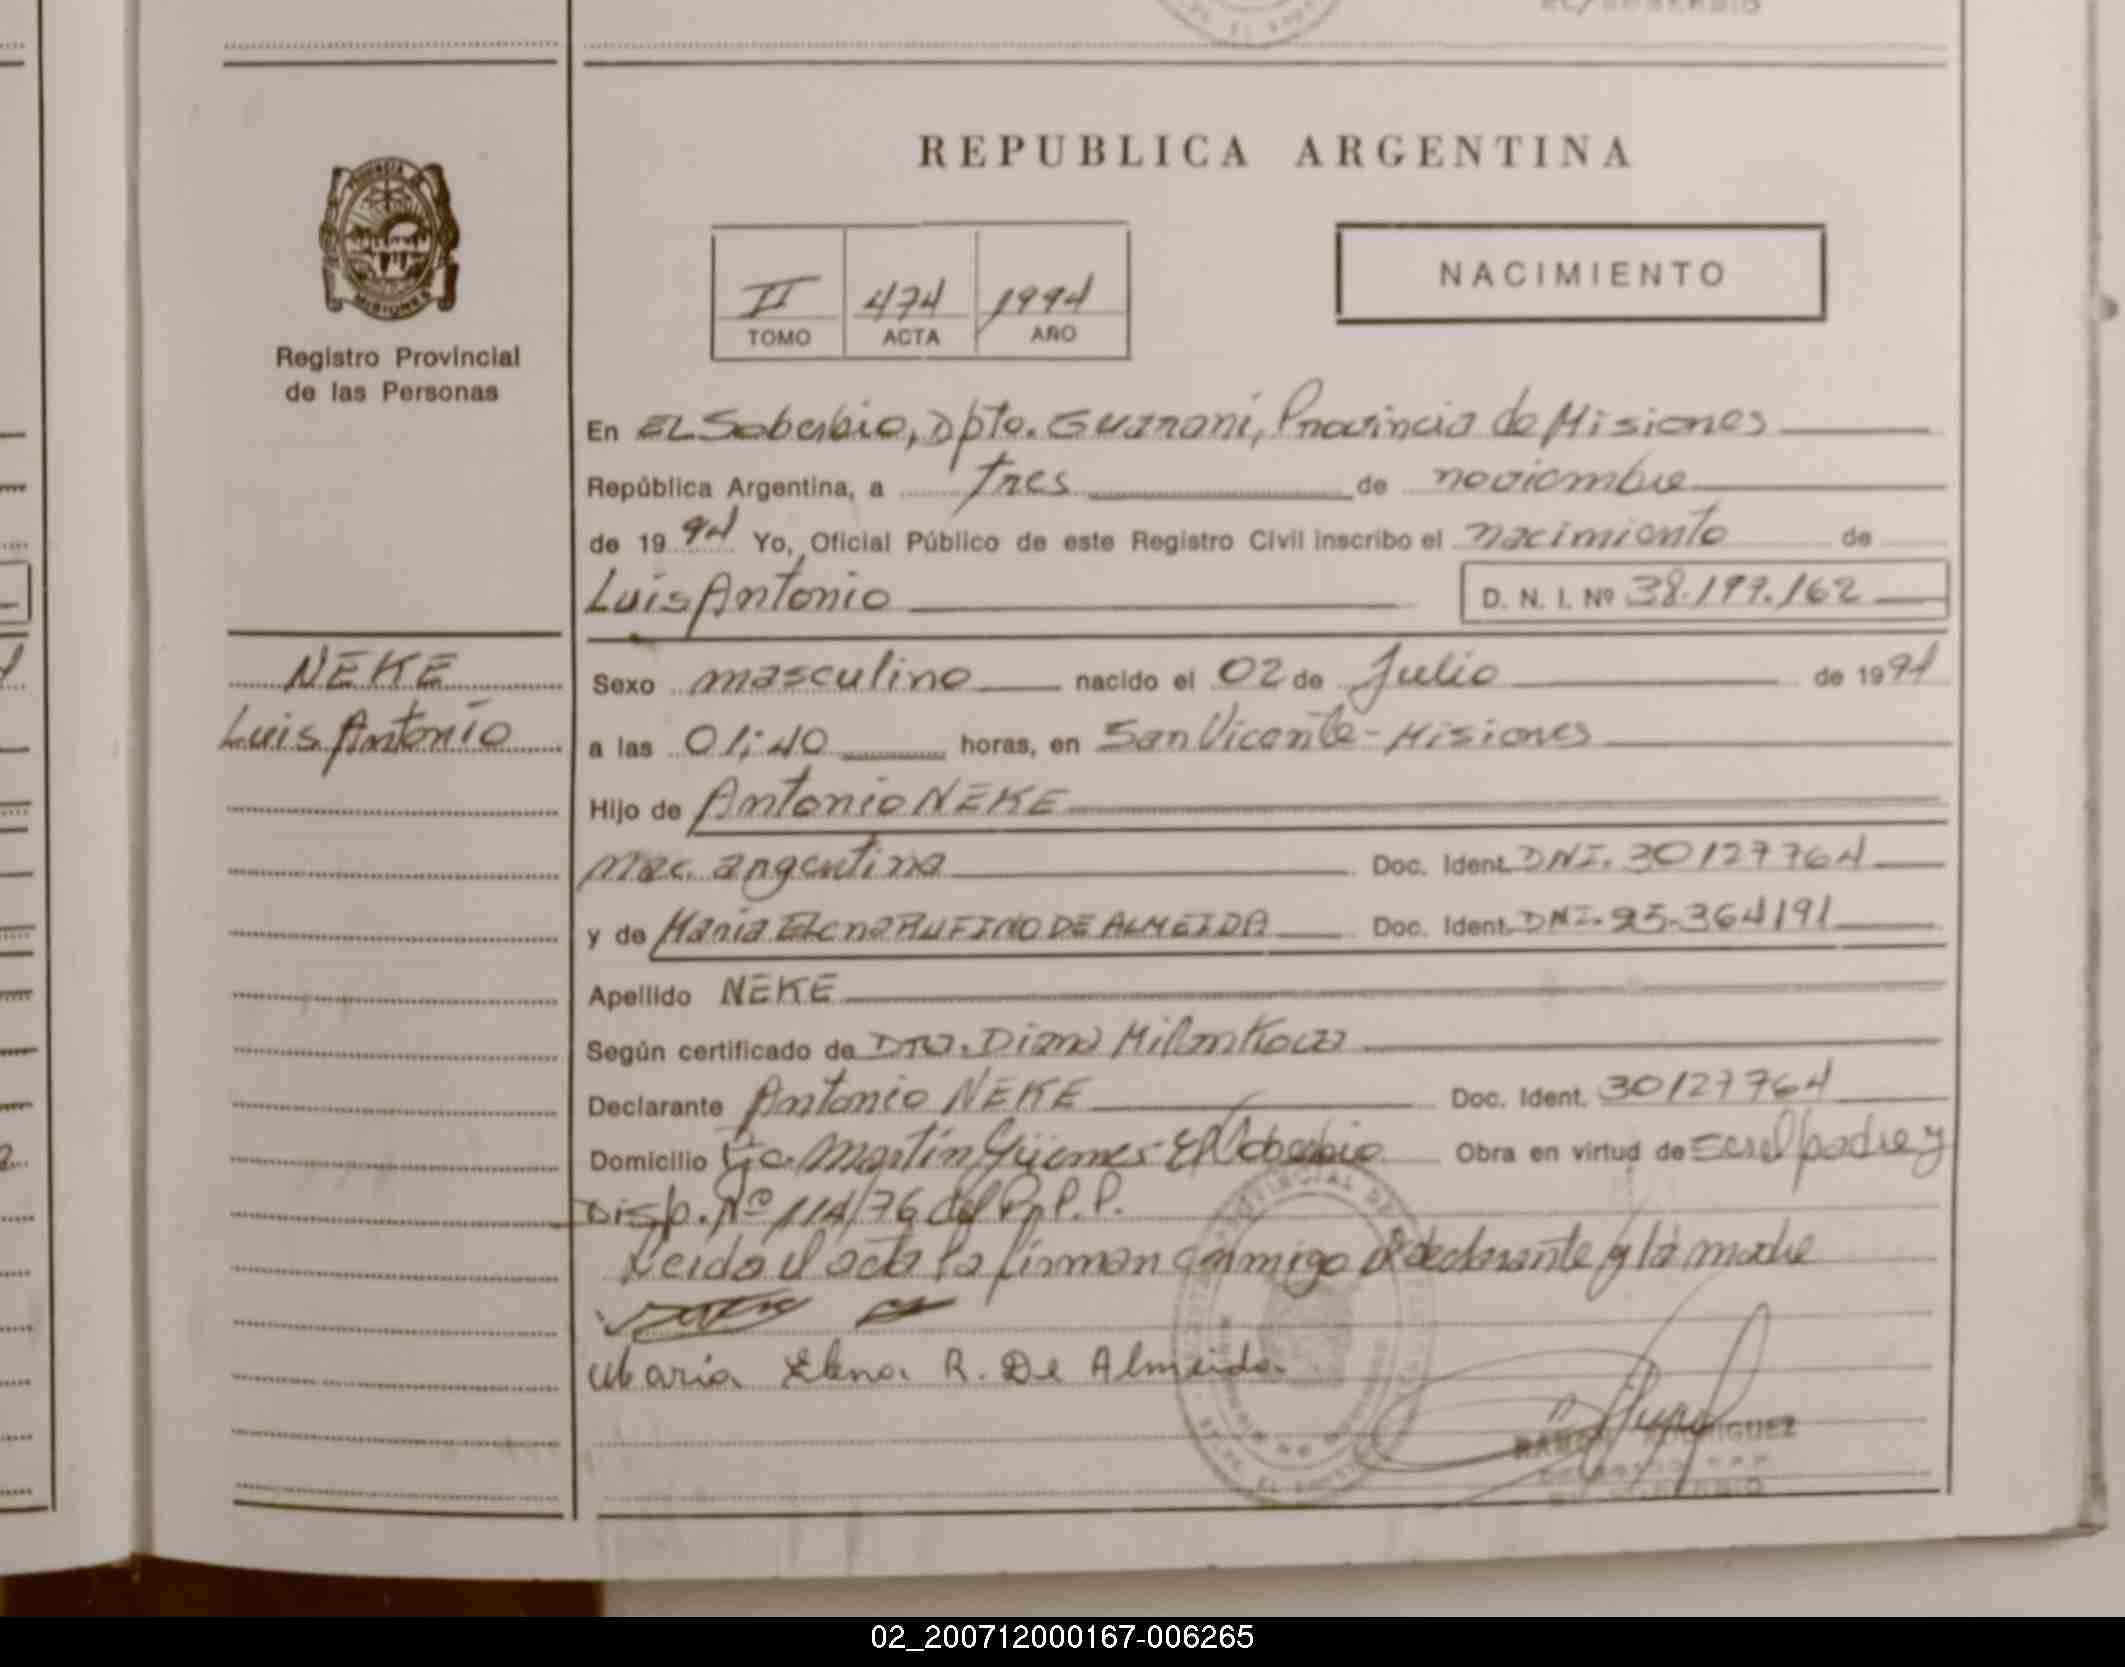 REPUBLICA ARGENTINA
NACIMIENTO
II 474 1994
TOMO ACTA AÑO
Registro Provincial
de las Personas
En EL Soberbio, Dpto. Guaraní, Provincia de Misiones
República Argentina, a tres de noviembre
de 19 94 Yo, Oficial Público de este Registro Civil inscribo el nacimiento de
Luis Antonio D. N. I. Nº 38.197.162
NEKE
Luis Antonio
Sexo masculino nacido el 02 de Julio de 1994
a las 01:40 horas, en San Vicente - Misiones
Hijo de Antonio NEKE
Nac. argentina Doc. Ident. DNI. 30127764
y de Maria Elena RUFINO DE ALMEIDA Doc. Ident. DNI. 95.364191
Apellido NEKE
Según certificado de Dra. Diana
Declarante Antonio NEKE Doc. Ident. 30127764
Domicilio Martín Güemes - El Soberbio Obra en virtud de ser el padre y
Disp. Nº 114/76 del R.P.P.
Leida el acta la firman conmigo el declarante y la madre
Maria Elena R. De Almeida
RAMON RODRIGUEZ
EL SOBERBIO
02_200712000167-006265